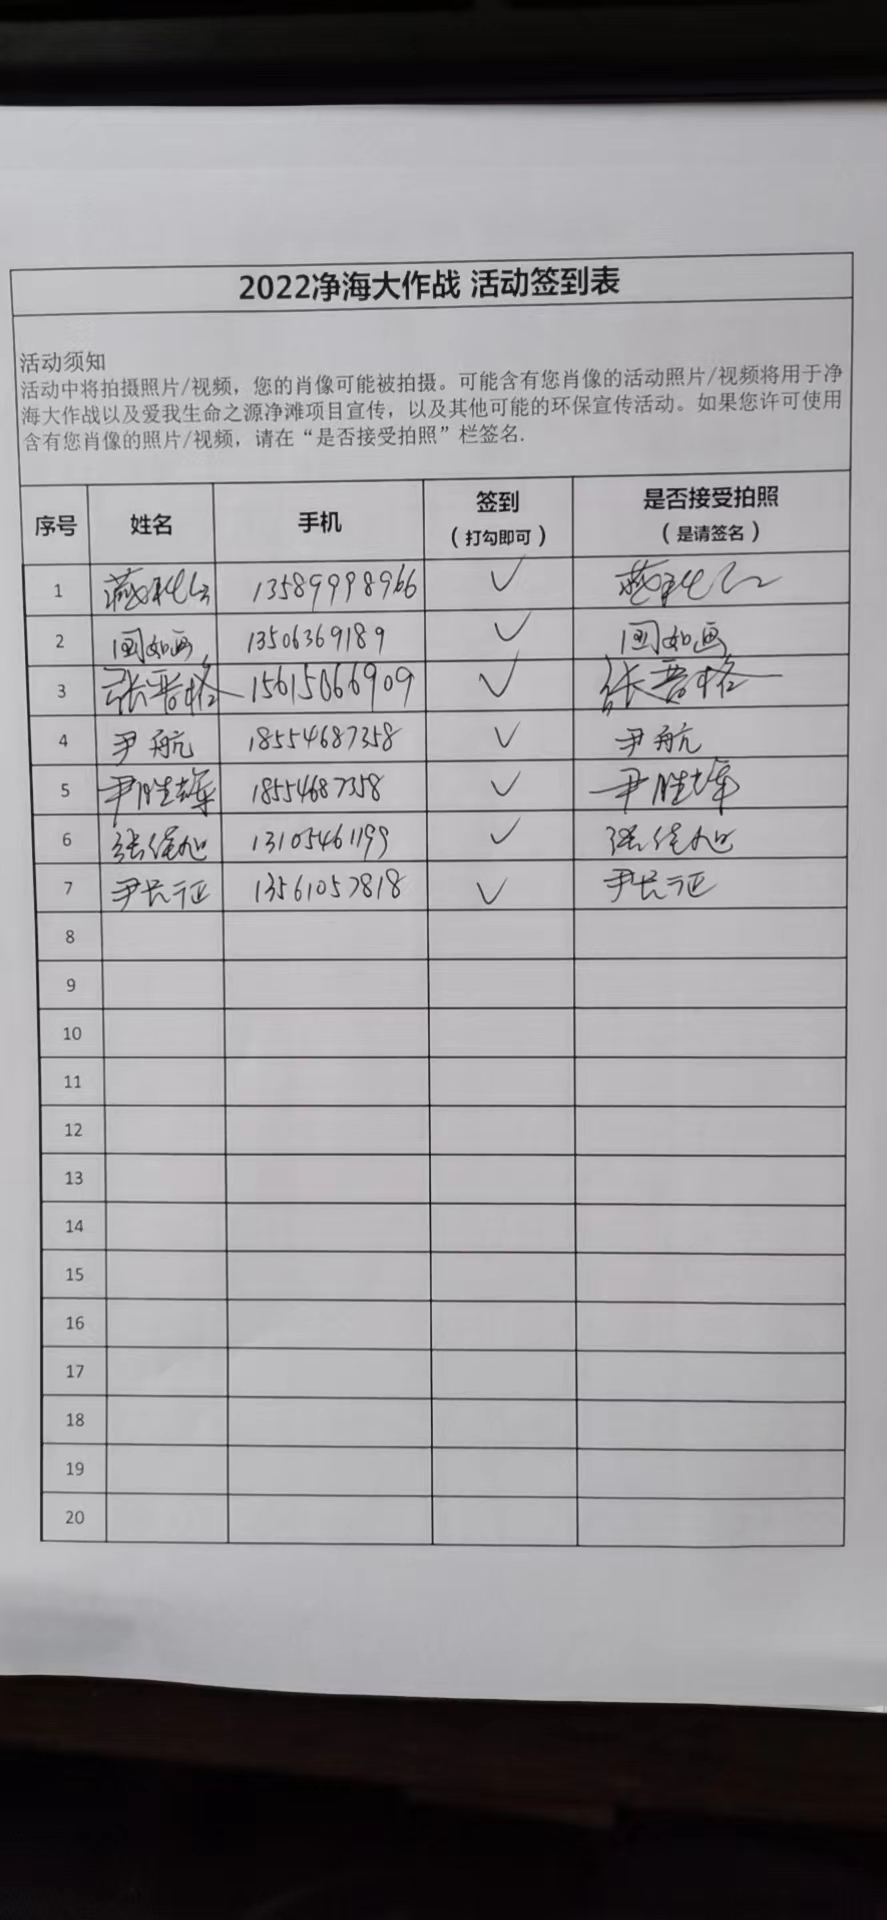 2022净海大作战 活动签到表
活动须知
活动中将拍摄照片/视频，您的肖像可能被拍摄。可能含有您肖像的活动照片/视频将用于净
海大作战以及爱我生命之源净滩项目宣传，以及其他可能的环保宣传活动。如果您许可使用
含有您肖像的照片/视频，请在“是否接受拍照”栏签名.
序号 姓名 手机 签到 （打勾即可） 是否接受拍照 （是请签名）
1 13589998966 ✓
2 国如画 13506369189 ✓ 国如画
3 张晋格 15615066909 ✓ 张晋格
4 尹航 18554687358 ✓ 尹航
5 尹胜雄 18554687358 ✓ 尹胜
6 张佳旭 13105461199 ✓ 张佳旭
7 尹长征 13561057818 ✓ 尹长征
8
9
10
11
12
13
14
15
16
17
18
19
20